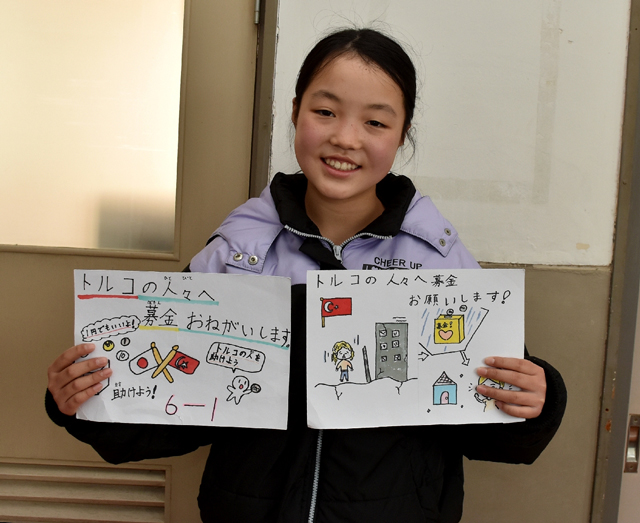 トルコの人々へ
募金 おねがいします
ぼ
1円でもいいよ!
トルコの人を
助けよう!
助けよう!
6-1
トルコの人々へ募金
お願いします!
募金
CHEER UP